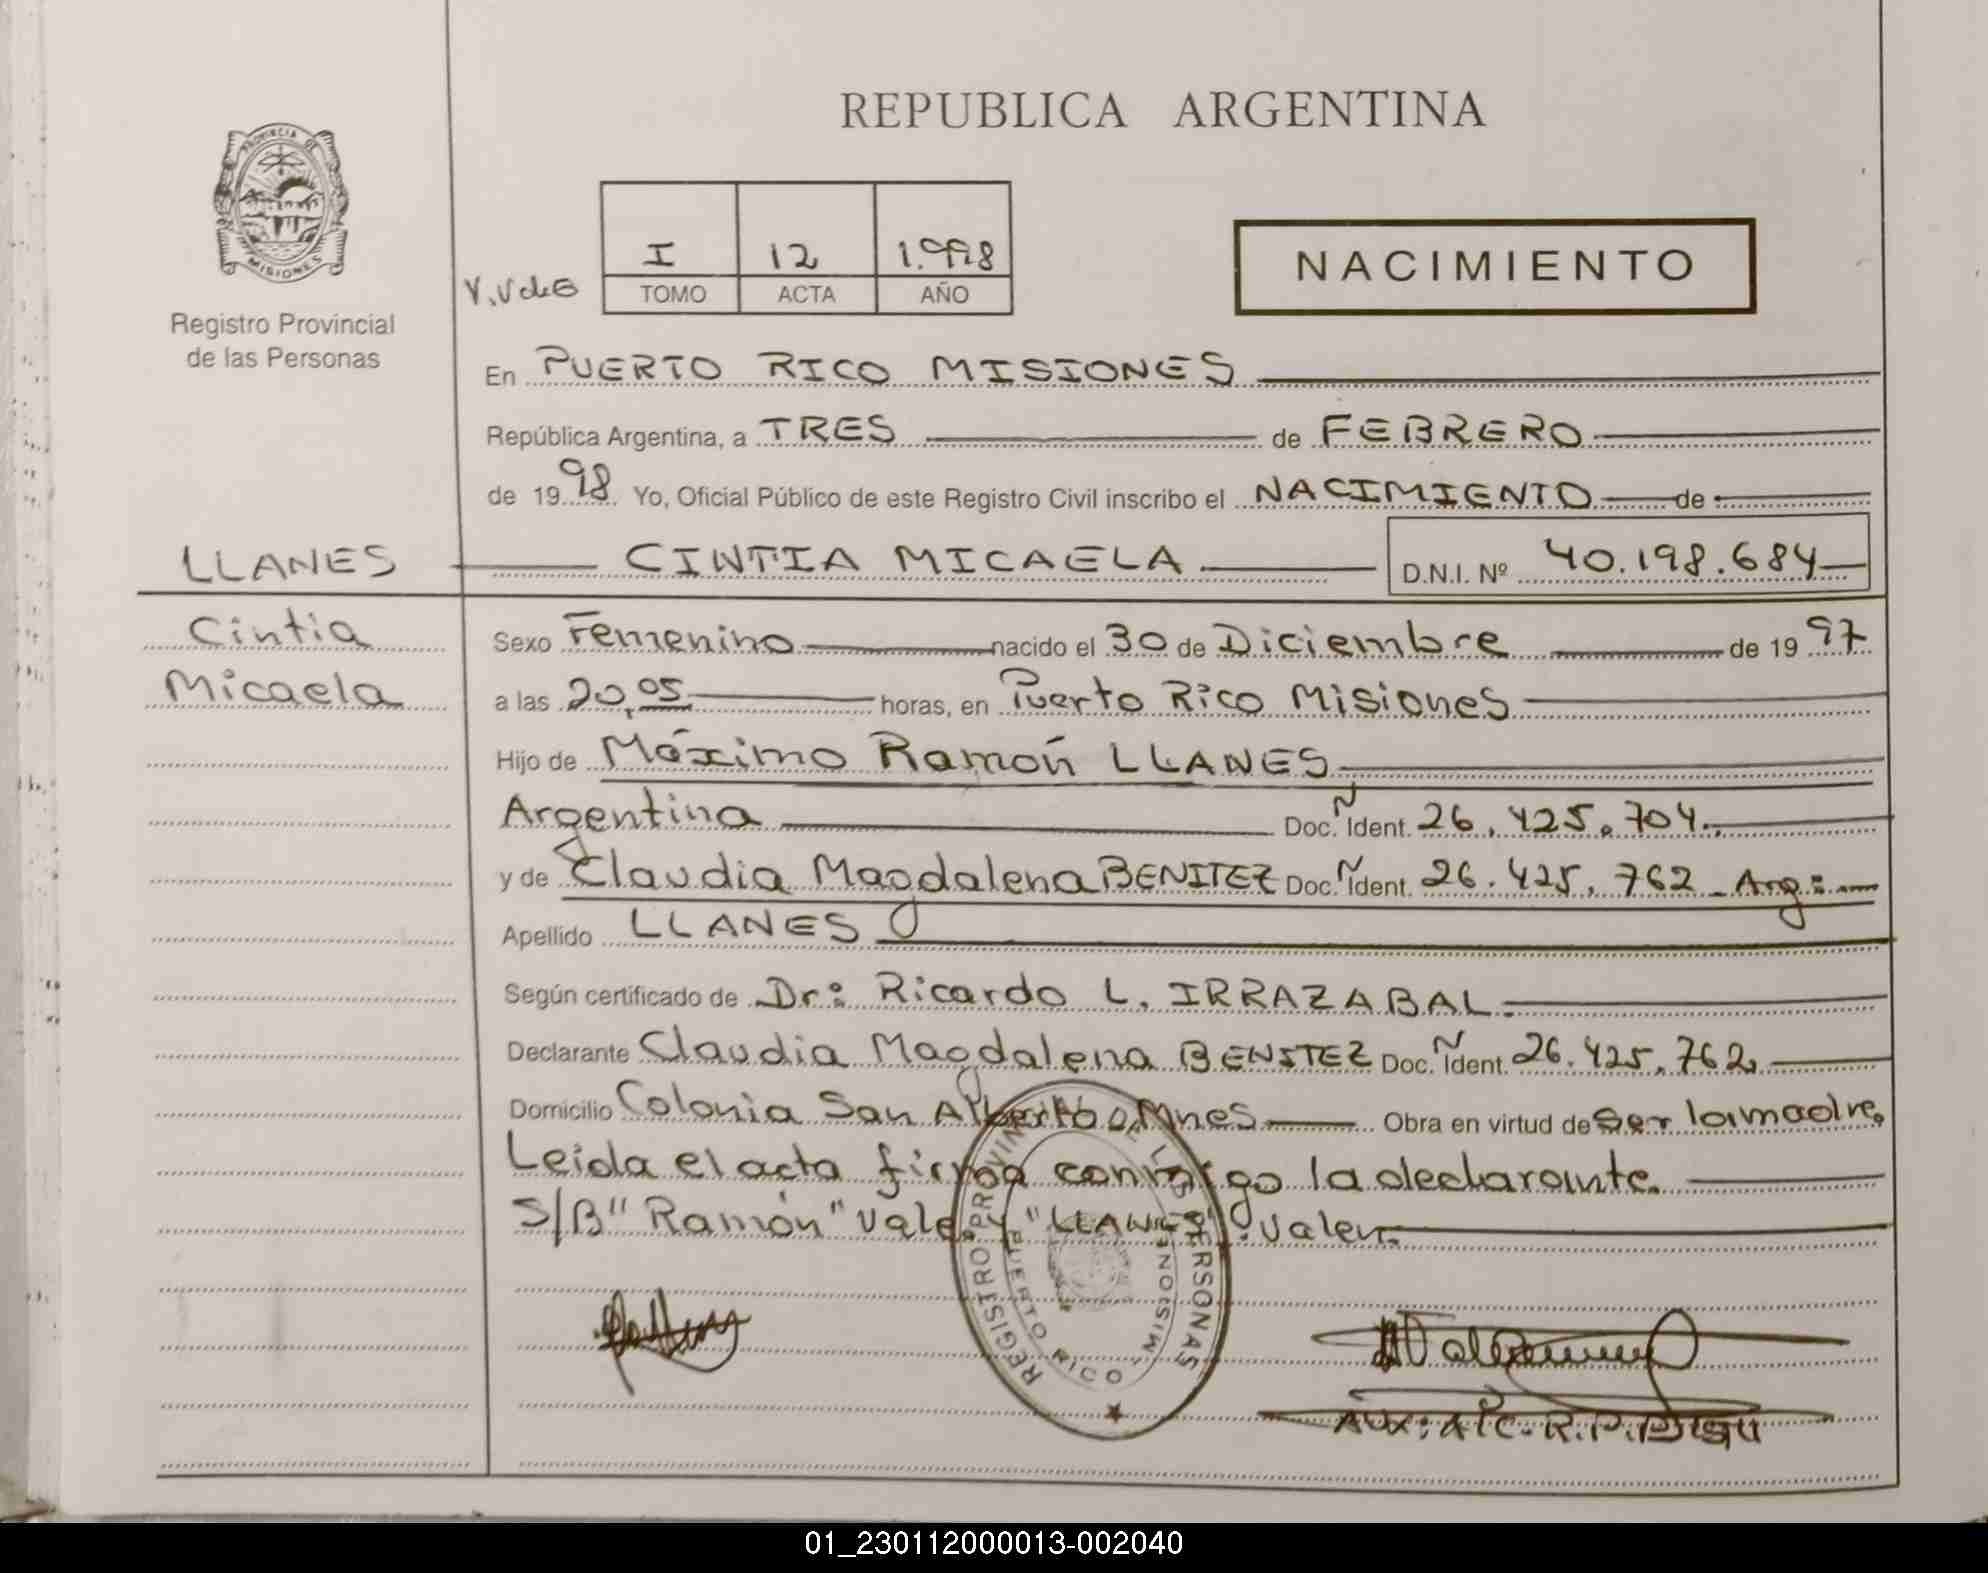 REPUBLICA ARGENTINA
PROVINCIA DE MISIONES
Registro Provincial
de las Personas
I 12 1.998
TOMO ACTA AÑO
NACIMIENTO
En PUERTO RICO MISIONES
República Argentina, a TRES de FEBRERO
de 1998 Yo, Oficial Público de este Registro Civil inscribo el NACIMIENTO de
LLANES CINTIA MICAELA D.N.I. Nº 40.198.684
Cintia
Micaela
Sexo Femenino nacido el 30 de Diciembre de 1997
a las 20,05 horas, en Puerto Rico Misiones
Hijo de Máximo Ramón LLANES
Argentina Doc. Ident. 26.425.704.
y de Claudia Magdalena BENITEZ Doc. Ident. 26.425.762 - Arg:
Apellido LLANES
Según certificado de Dr: Ricardo L. IRRAZABAL.
Declarante Claudia Magdalena BENITEZ Doc. Ident. 26.425.762
Domicilio Colonia San Alberto Mnes Obra en virtud de ser la madre.
Leida el acta firma conmigo la declarante.
S/B "Ramón" vale y "LLANES". valen.
REGISTRO PROVINCIAL DE LAS PERSONAS
PUERTO RICO MISIONES
01_230112000013-002040